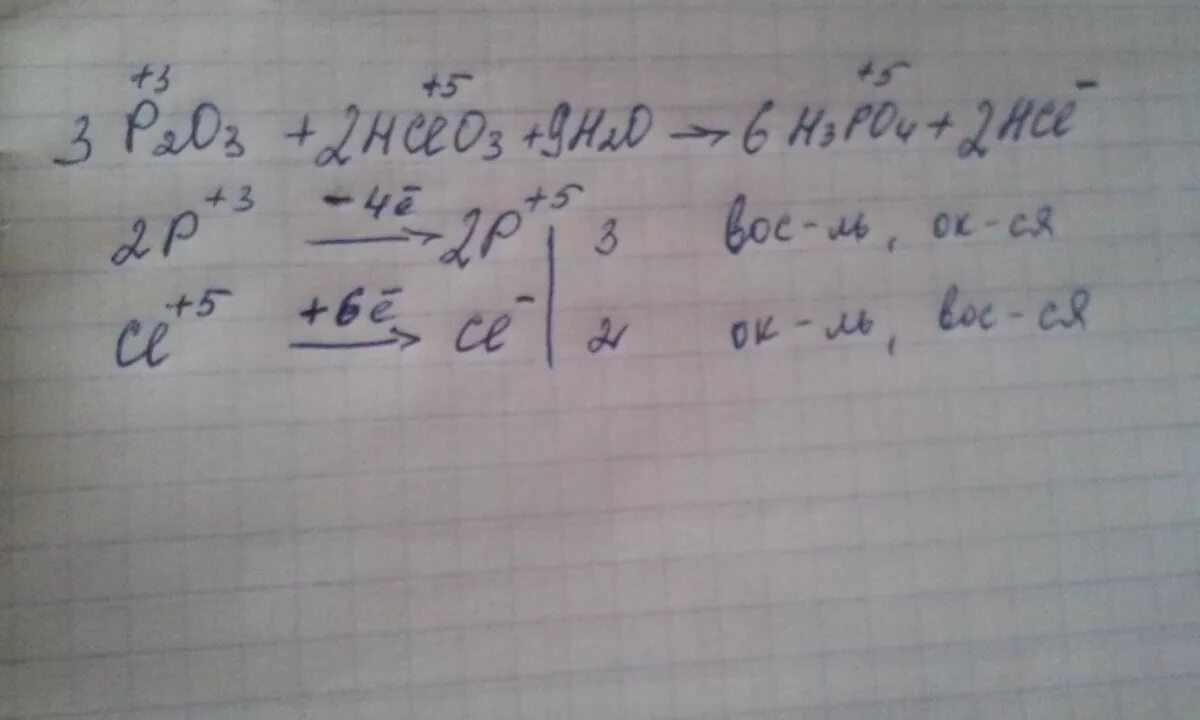 3 P₂⁺³O₃ + 2HCl⁺⁵O₃ + 9H₂O → 6 H₃P⁺⁵O₄ + 2HCl⁻
2P⁺³ −4ē → 2P⁺⁵ | 3 вос-ль, ок-ся
Cl⁺⁵ +6ē → Cl⁻ | 2 ок-ль, вос-ся